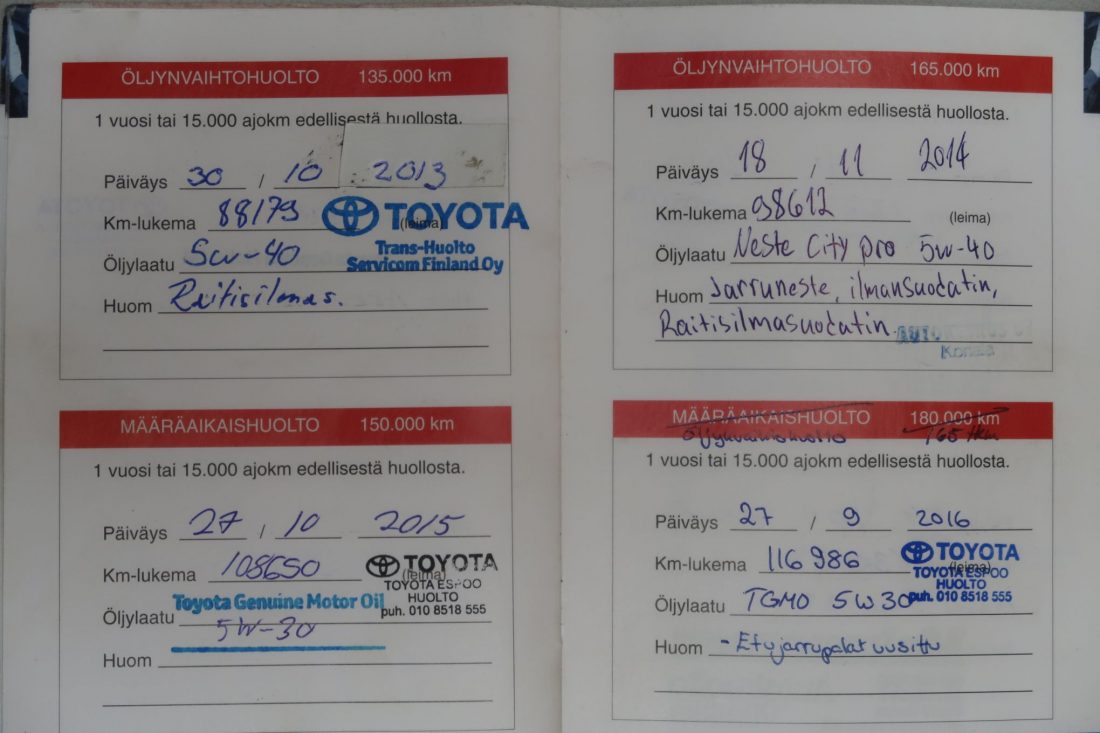 ÖLJYNVAIHTOHUOLTO 135.000 km
1 vuosi tai 15.000 ajokm edellisestä huollosta.
Päiväys 30 / 10 2013
Km-lukema 88179 (leima)
TOYOTA
Trans-Huolto
Servicom Finland Oy
Öljylaatu 5w-40
Huom Raitisilmas.
MÄÄRÄAIKAISHUOLTO 150.000 km
1 vuosi tai 15.000 ajokm edellisestä huollosta.
Päiväys 27 / 10 2015
Km-lukema 108650 (leima)
TOYOTA
TOYOTA ESPOO
HUOLTO
puh. 010 8518 555
Toyota Genuine Motor Oil
Öljylaatu 5W-30
Huom
ÖLJYNVAIHTOHUOLTO 165.000 km
1 vuosi tai 15.000 ajokm edellisestä huollosta.
Päiväys 18 / 11 2014
Km-lukema 98612 (leima)
Öljylaatu Neste City pro 5w-40
Huom Jarruneste, ilmansuodatin,
Raitisilmasuodatin.
MÄÄRÄAIKAISHUOLTO 180.000 km
Öljynvaihtohuolto 165 tkm
1 vuosi tai 15.000 ajokm edellisestä huollosta.
Päiväys 27 / 9 2016
Km-lukema 116 986 (leima)
TOYOTA
TOYOTA ESPOO
HUOLTO
puh. 010 8518 555
Öljylaatu TGMO 5W30
Huom - Etujarrupalat uusittu